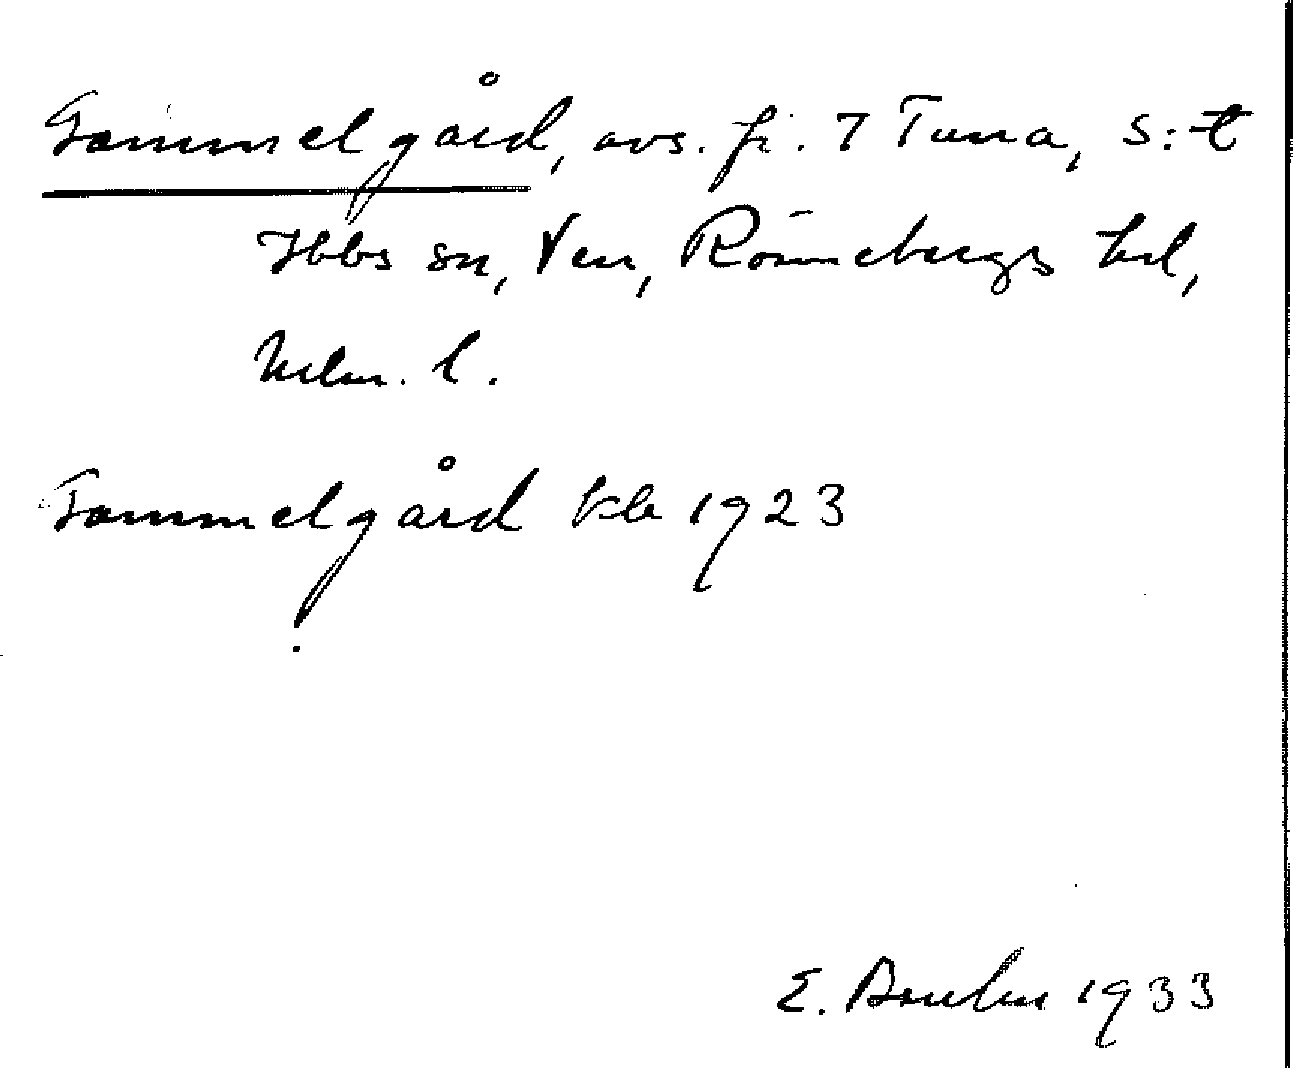 Gammelgård, avs. fr. 7 Tuna, S:t
Ibbs sn, Ven, Rönnebergs hd,
Malm. l.
Gammelgård 1923
E. 1933